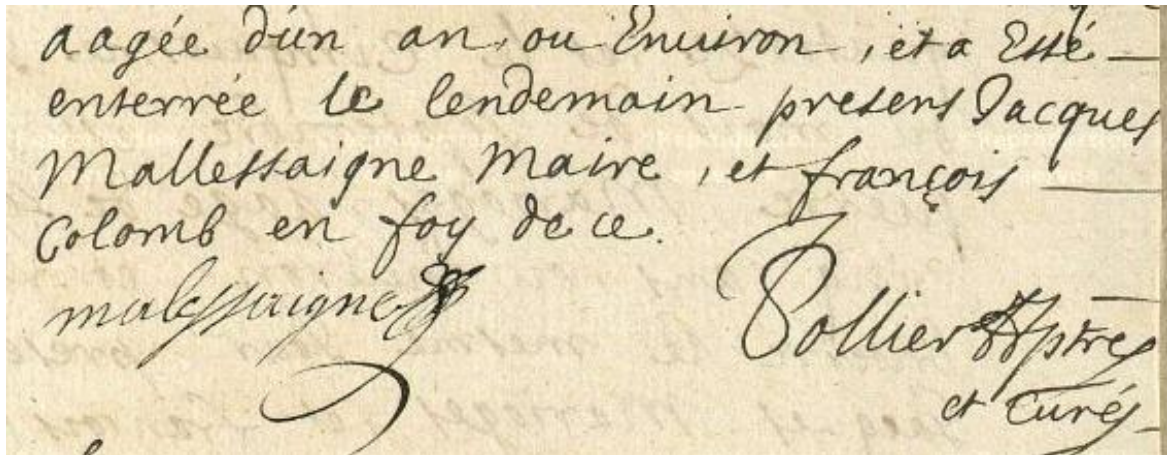 aagée d'un an, ou Enuiron, et a Esté
enterrée le lendemain presens Jacques
Mallessaigne Maire, et françois
Colomb en foy de ce.
malessaigne
Pollier ptre
et Curé